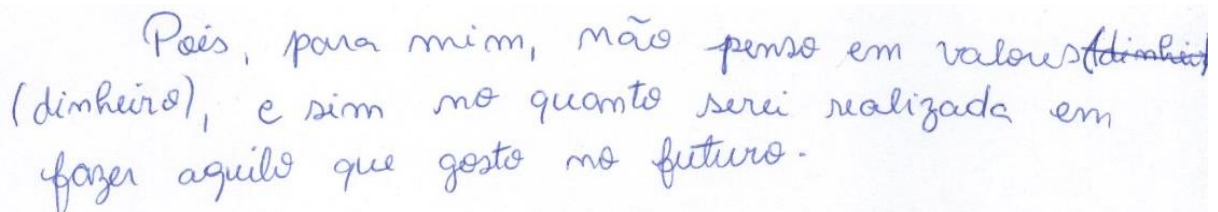 Pois, para mim, não penso em valores (dinhei
(dinheiro), e sim no quanto serei realizada em
fazer aquilo que gosto no futuro.